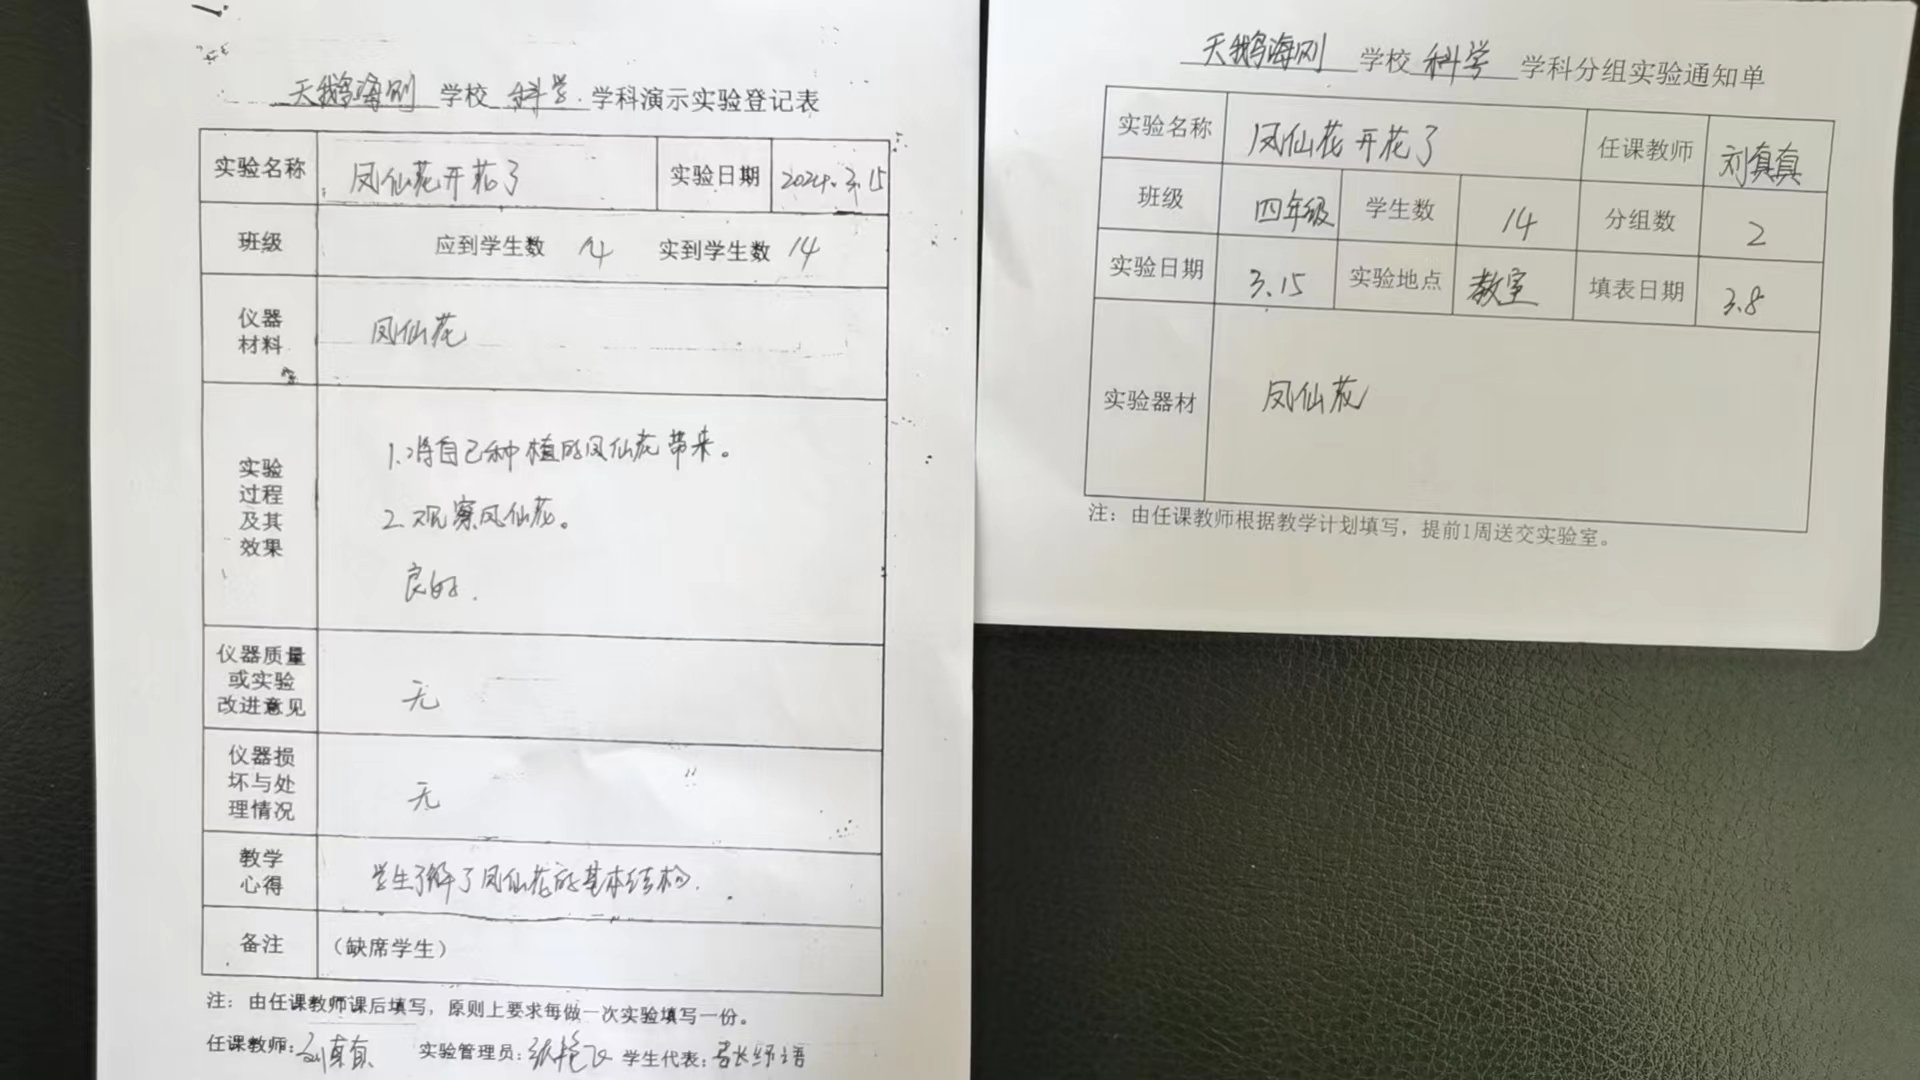 天鹅海刚 学校 科学 学科演示实验登记表
实验名称 凤仙花开花了 实验日期 2024.3.15
班级 应到学生数 14 实到学生数 14
仪器
材料
凤仙花
实验
过程
及其
效果
1.将自己种植的凤仙花带来。
2.观察凤仙花。
良好.
仪器质量
或实验
改进意见
无
仪器损
坏与处
理情况
无
教学
心得
学生了解了凤仙花的基本结构.
备注 (缺席学生)
注: 由任课教师课后填写, 原则上要求每做一次实验填写一份。
任课教师: 刘真真 实验管理员: 学生代表:
天鹅海刚 学校 科学 学科分组实验通知单
实验名称 凤仙花开花了 任课教师 刘真真
班级 四年级 学生数 14 分组数 2
实验日期 3.15 实验地点 教室 填表日期 3.8
实验器材 凤仙花
注: 由任课教师根据教学计划填写, 提前1周送交实验室。